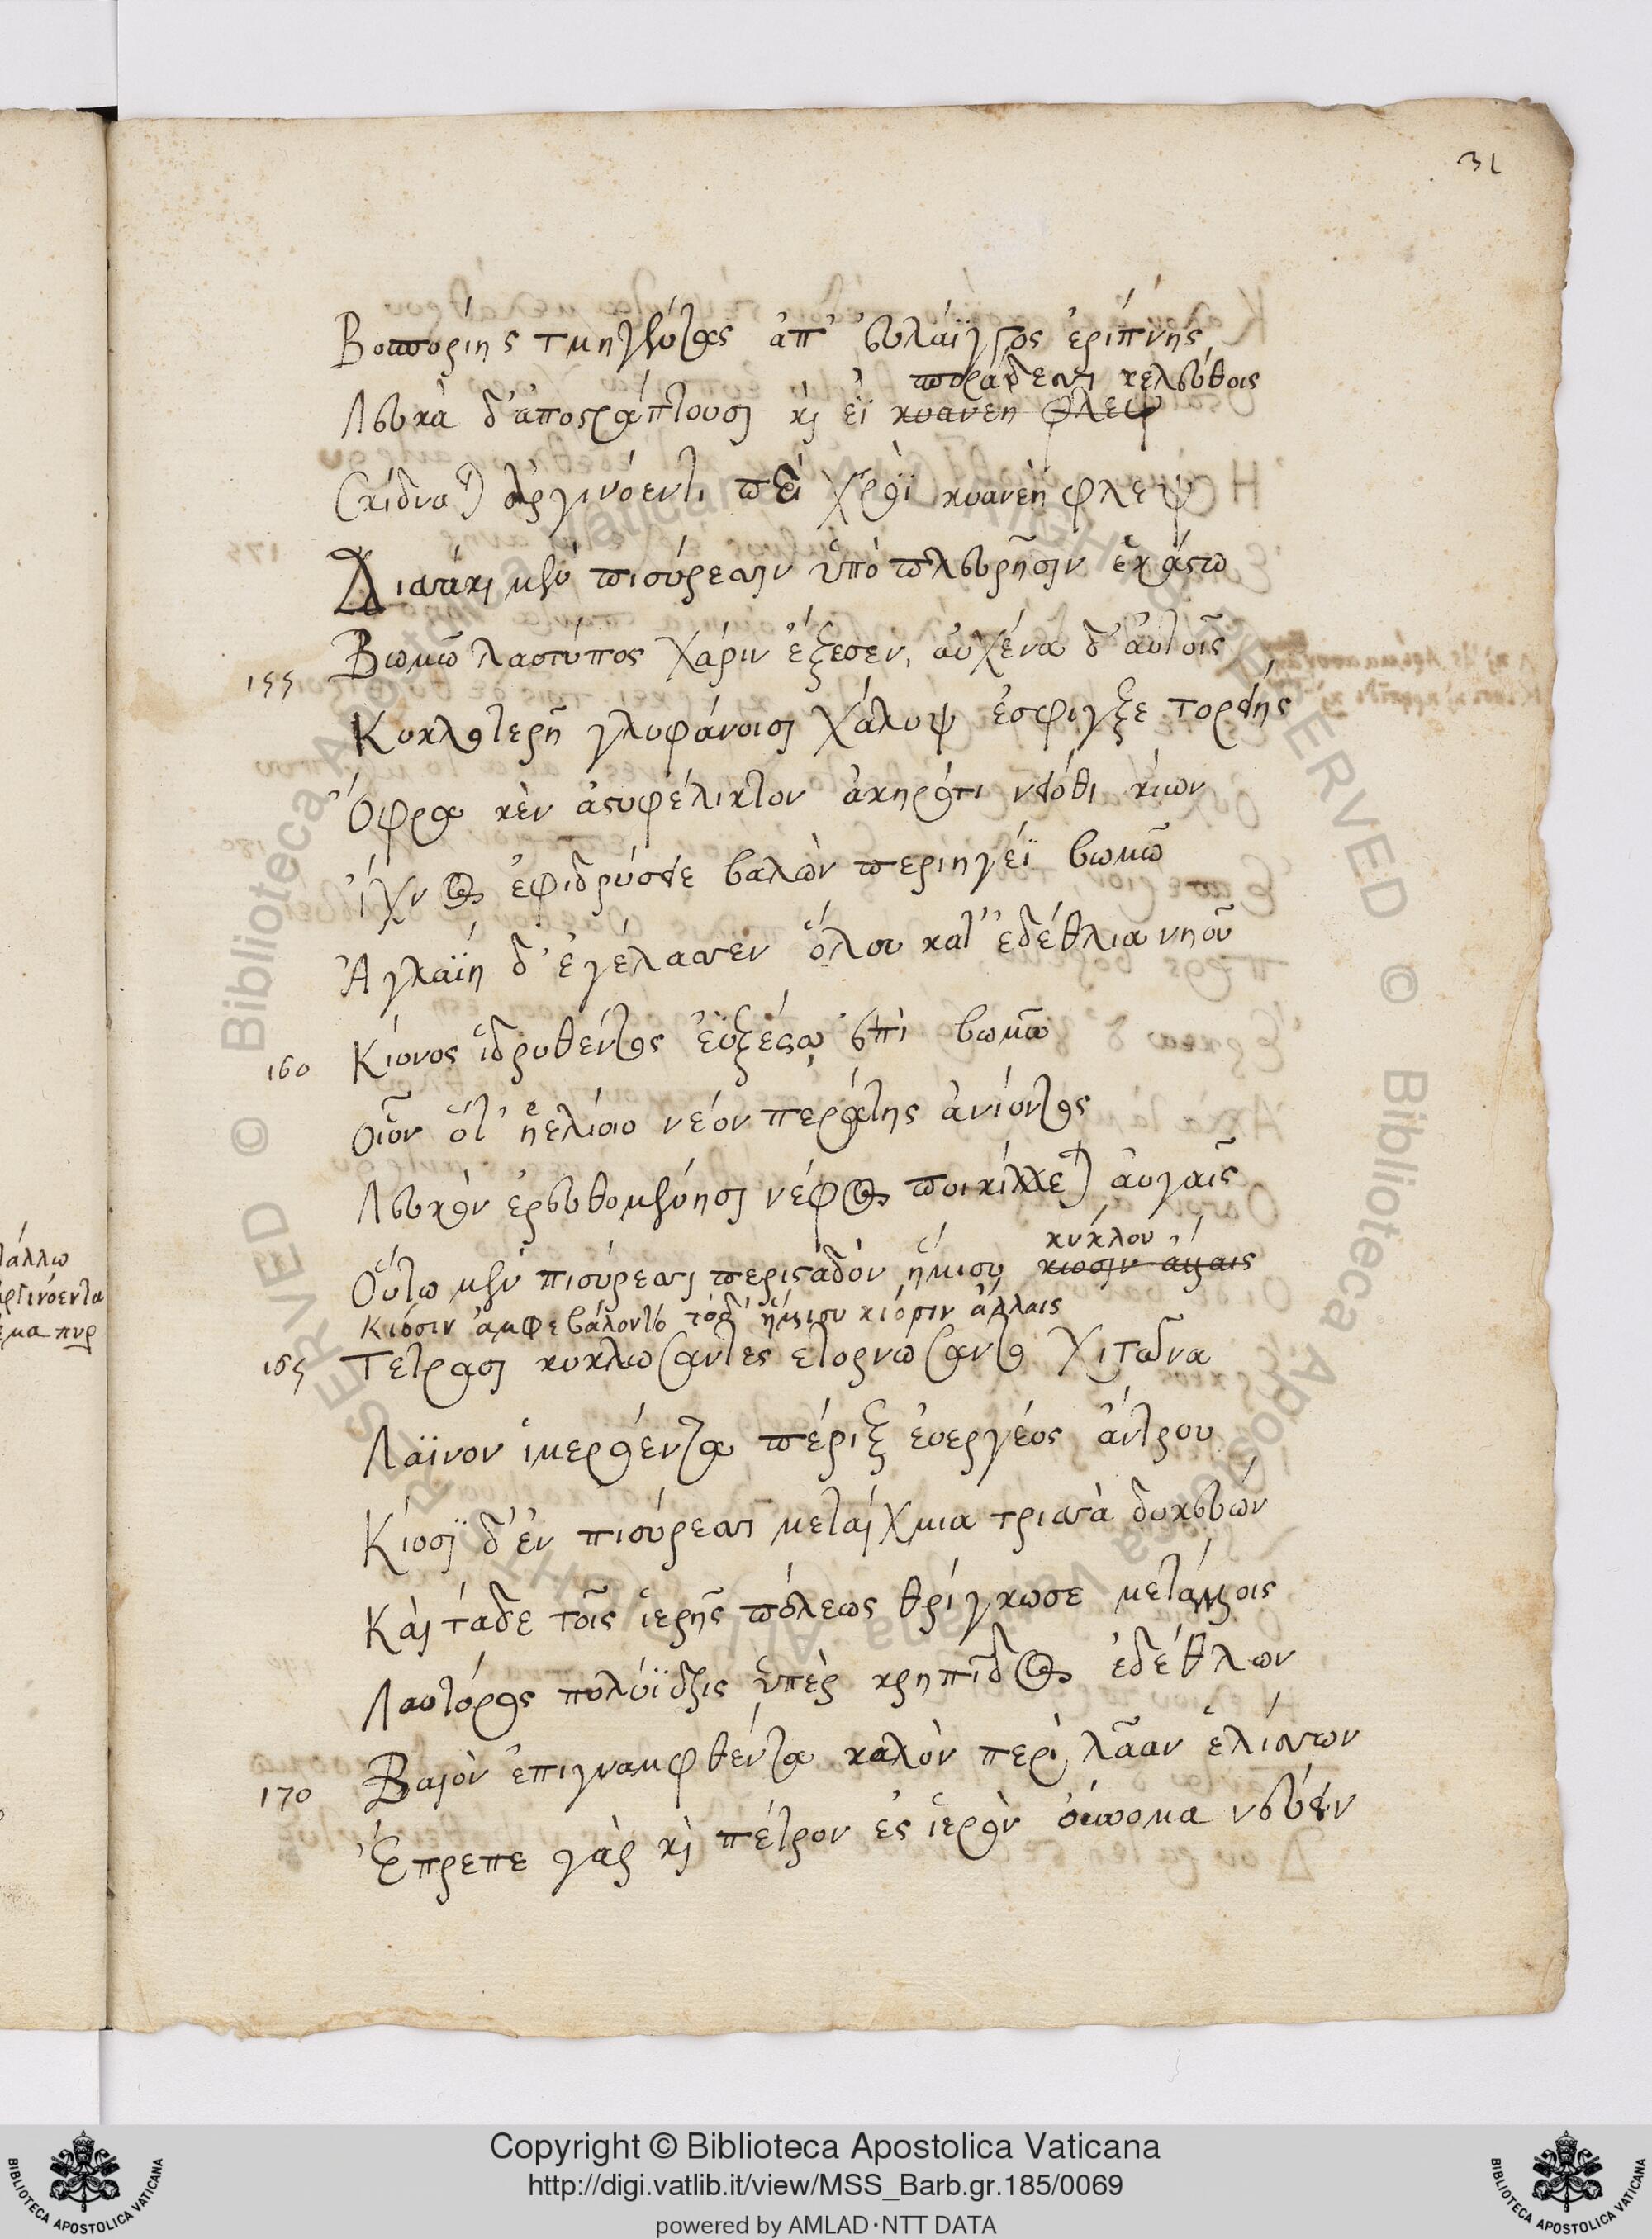 31
Βοσπορίης τμηγέντος ἀπ' εὐλάϊγγος ἐρίπνης
πορφυρέαισι κελεύθοις
Λευκὰ δ' ἀποστράπτουσι καὶ εἰ κυανέη φλεψ
Σκίδναται ἀργινόεντι περὶ χροῒ κυανέη φλεψ
Δισσάκι μὲν πισύρεσσιν ὑπὸ πλευρῇσιν ἑκάστῳ
155 Βωμῷ λαοτύπος χάριν ἔξεσεν, αὐχένα δ' αὐτοῖς
Κυκλοτερῆ γλυφάνοισι χάλυψ ἔσφιγξε τορείης
Ὄφρα κὲν ἀστυφέλικτον ἀκηρότι νειόθι κίων
ἴχνος ἐφιδρύσειε βαλὼν περιηγέϊ βωμῷ
Ἀγλαΐη δ' ἐγέλασσεν ὅλου κατ' ἐδέθλια νηοῦ
160 Κίονος ἱδρυθέντος ἐϋξέστῳ ἐπὶ βωμῷ
Οἷον ὅτ' ἠελίοιο νέον περάτης ἀνιόντος
Λευκὸν ἐρευθομένησι νέφος ποικίλλεται αὐγαῖς
κύκλου
Οὕτω μὲν πισύρεσσι περισταδὸν ἥμισυ κιόσιν
Κιόσιν ἀμφεβάλοντο τόδ' ἥμισυ κιόσιν ἄλλαις
165 Τέτρασι κυκλώσαντες ἐτορνώσαντο χιτῶνα
Λαΐνον ἱμερόεντα πέριξ εὐεργέος ἄντρου
Κίοσι δ' ἐν πισύρεσσι μεταίχμια τρισσὰ δοκεύων
Καὶ τάδε τοῖς ἱερῆς πόλεως θρίγκωσε μετάλλοις
Λαοτόρος πολύϊδρις ὑπὲρ κρηπῖδος ἐδέθλων
170 Βαιὸν ἐπιγναμφθέντα καλὸν περὶ λᾶαν ἑλίσσων
Ἔπρεπε γὰρ καὶ πέτρον ἐς ἱερὸν νεύειν
άλλω
αργινόεντα
εμα πυρ
Copyright © Biblioteca Apostolica Vaticana
http://digi.vatlib.it/view/MSS_Barb.gr.185/0069
powered by AMLAD·NTT DATA
BIBLIOTECA APOSTOLICA VATICANA
BIBLIOTECA APOSTOLICA VATICANA